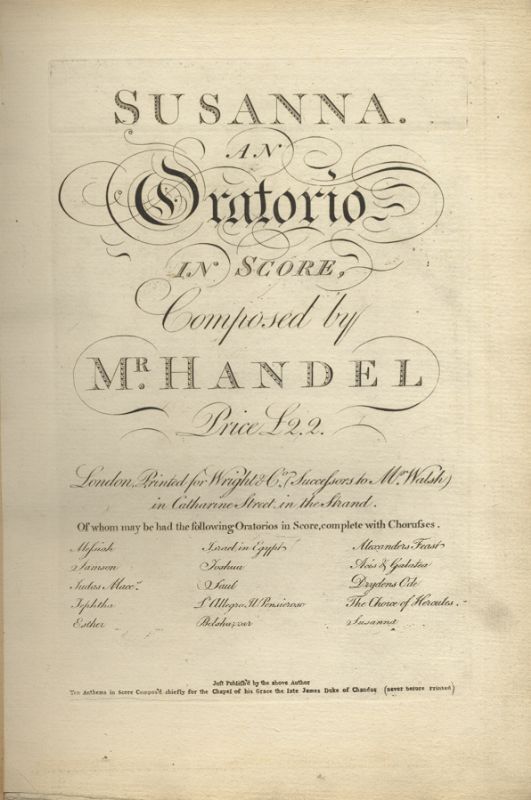 SUSANNA.
AN
Oratorio
IN SCORE,
Composed by
MR. HANDEL
Price £2.2.
London, Printed for Wright & Co. (Successors to Mr. Walsh)
in Catharine Street in the Strand.
Of whom may be had the following Oratorios in Score, complete with Chorusses.
Messiah Israel in Egypt Alexanders Feast
Samson Joshua Acis & Galatea
Judas Macc. Saul Drydens Ode
Jephtha L'Allegro, Il Pensieroso The Choice of Hercules.
Esther Belshazzar Susanna
Just Publish'd by the above Author
Ten Anthems in Score Compos'd chiefly for the Chapel of his Grace the late James Duke of Chandos (never before Printed)